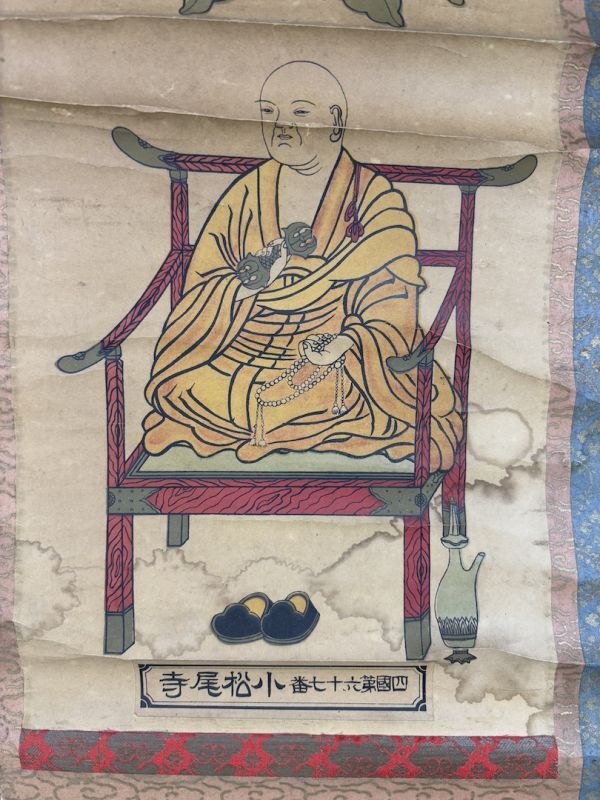 四國第六十七番小松尾寺